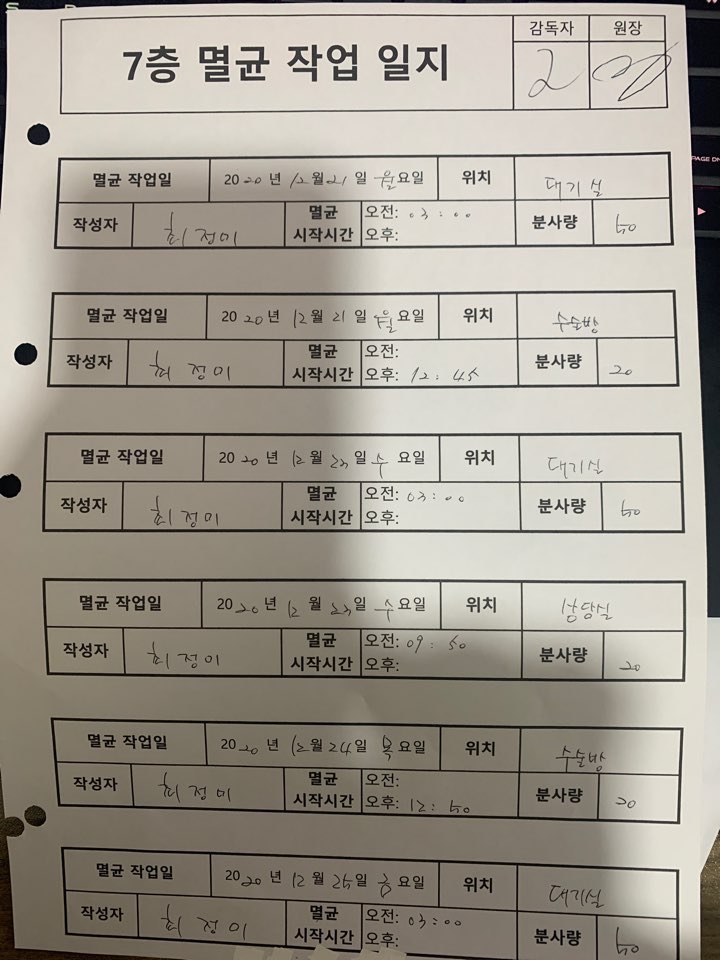 감독자 원장
7층 멸균 작업 일지
2
멸균 작업일 2020 년 12월 21 일 월요일 위치 대기실
작성자 최정미 멸균 시작시간 오전: 03:00 분사량 40
오후:
멸균 작업일 2020 년 12월 21 일 월요일 위치 수술방
작성자 최정미 멸균 시작시간 오전: 분사량 20
오후: 12:45
멸균 작업일 2020 년 12월 23일 수요일 위치 대기실
작성자 최정미 멸균 시작시간 오전: 03:00 분사량 40
오후:
멸균 작업일 2020 년 12월 23일 수요일 위치 상담실
작성자 최정미 멸균 시작시간 오전: 09:50 분사량 20
오후:
멸균 작업일 2020 년 12월 24일 목요일 위치 수술방
작성자 최정미 멸균 시작시간 오전: 분사량 20
오후: 12:40
멸균 작업일 2020 년 12월 25일 금요일 위치 대기실
작성자 최정미 멸균 시작시간 오전: 03:00 분사량 40
오후:
PAGE DN